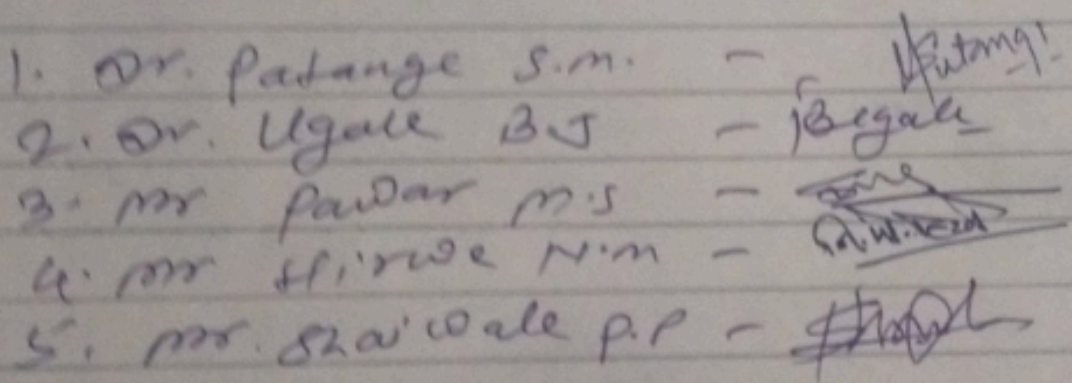 1. Dr. Patange S.M. -
2. Dr. Ugale B.J -
3. Mr Pawar M.S -
4. Mr Hirwe N.M -
5. Mr. Shaiwale P.P -